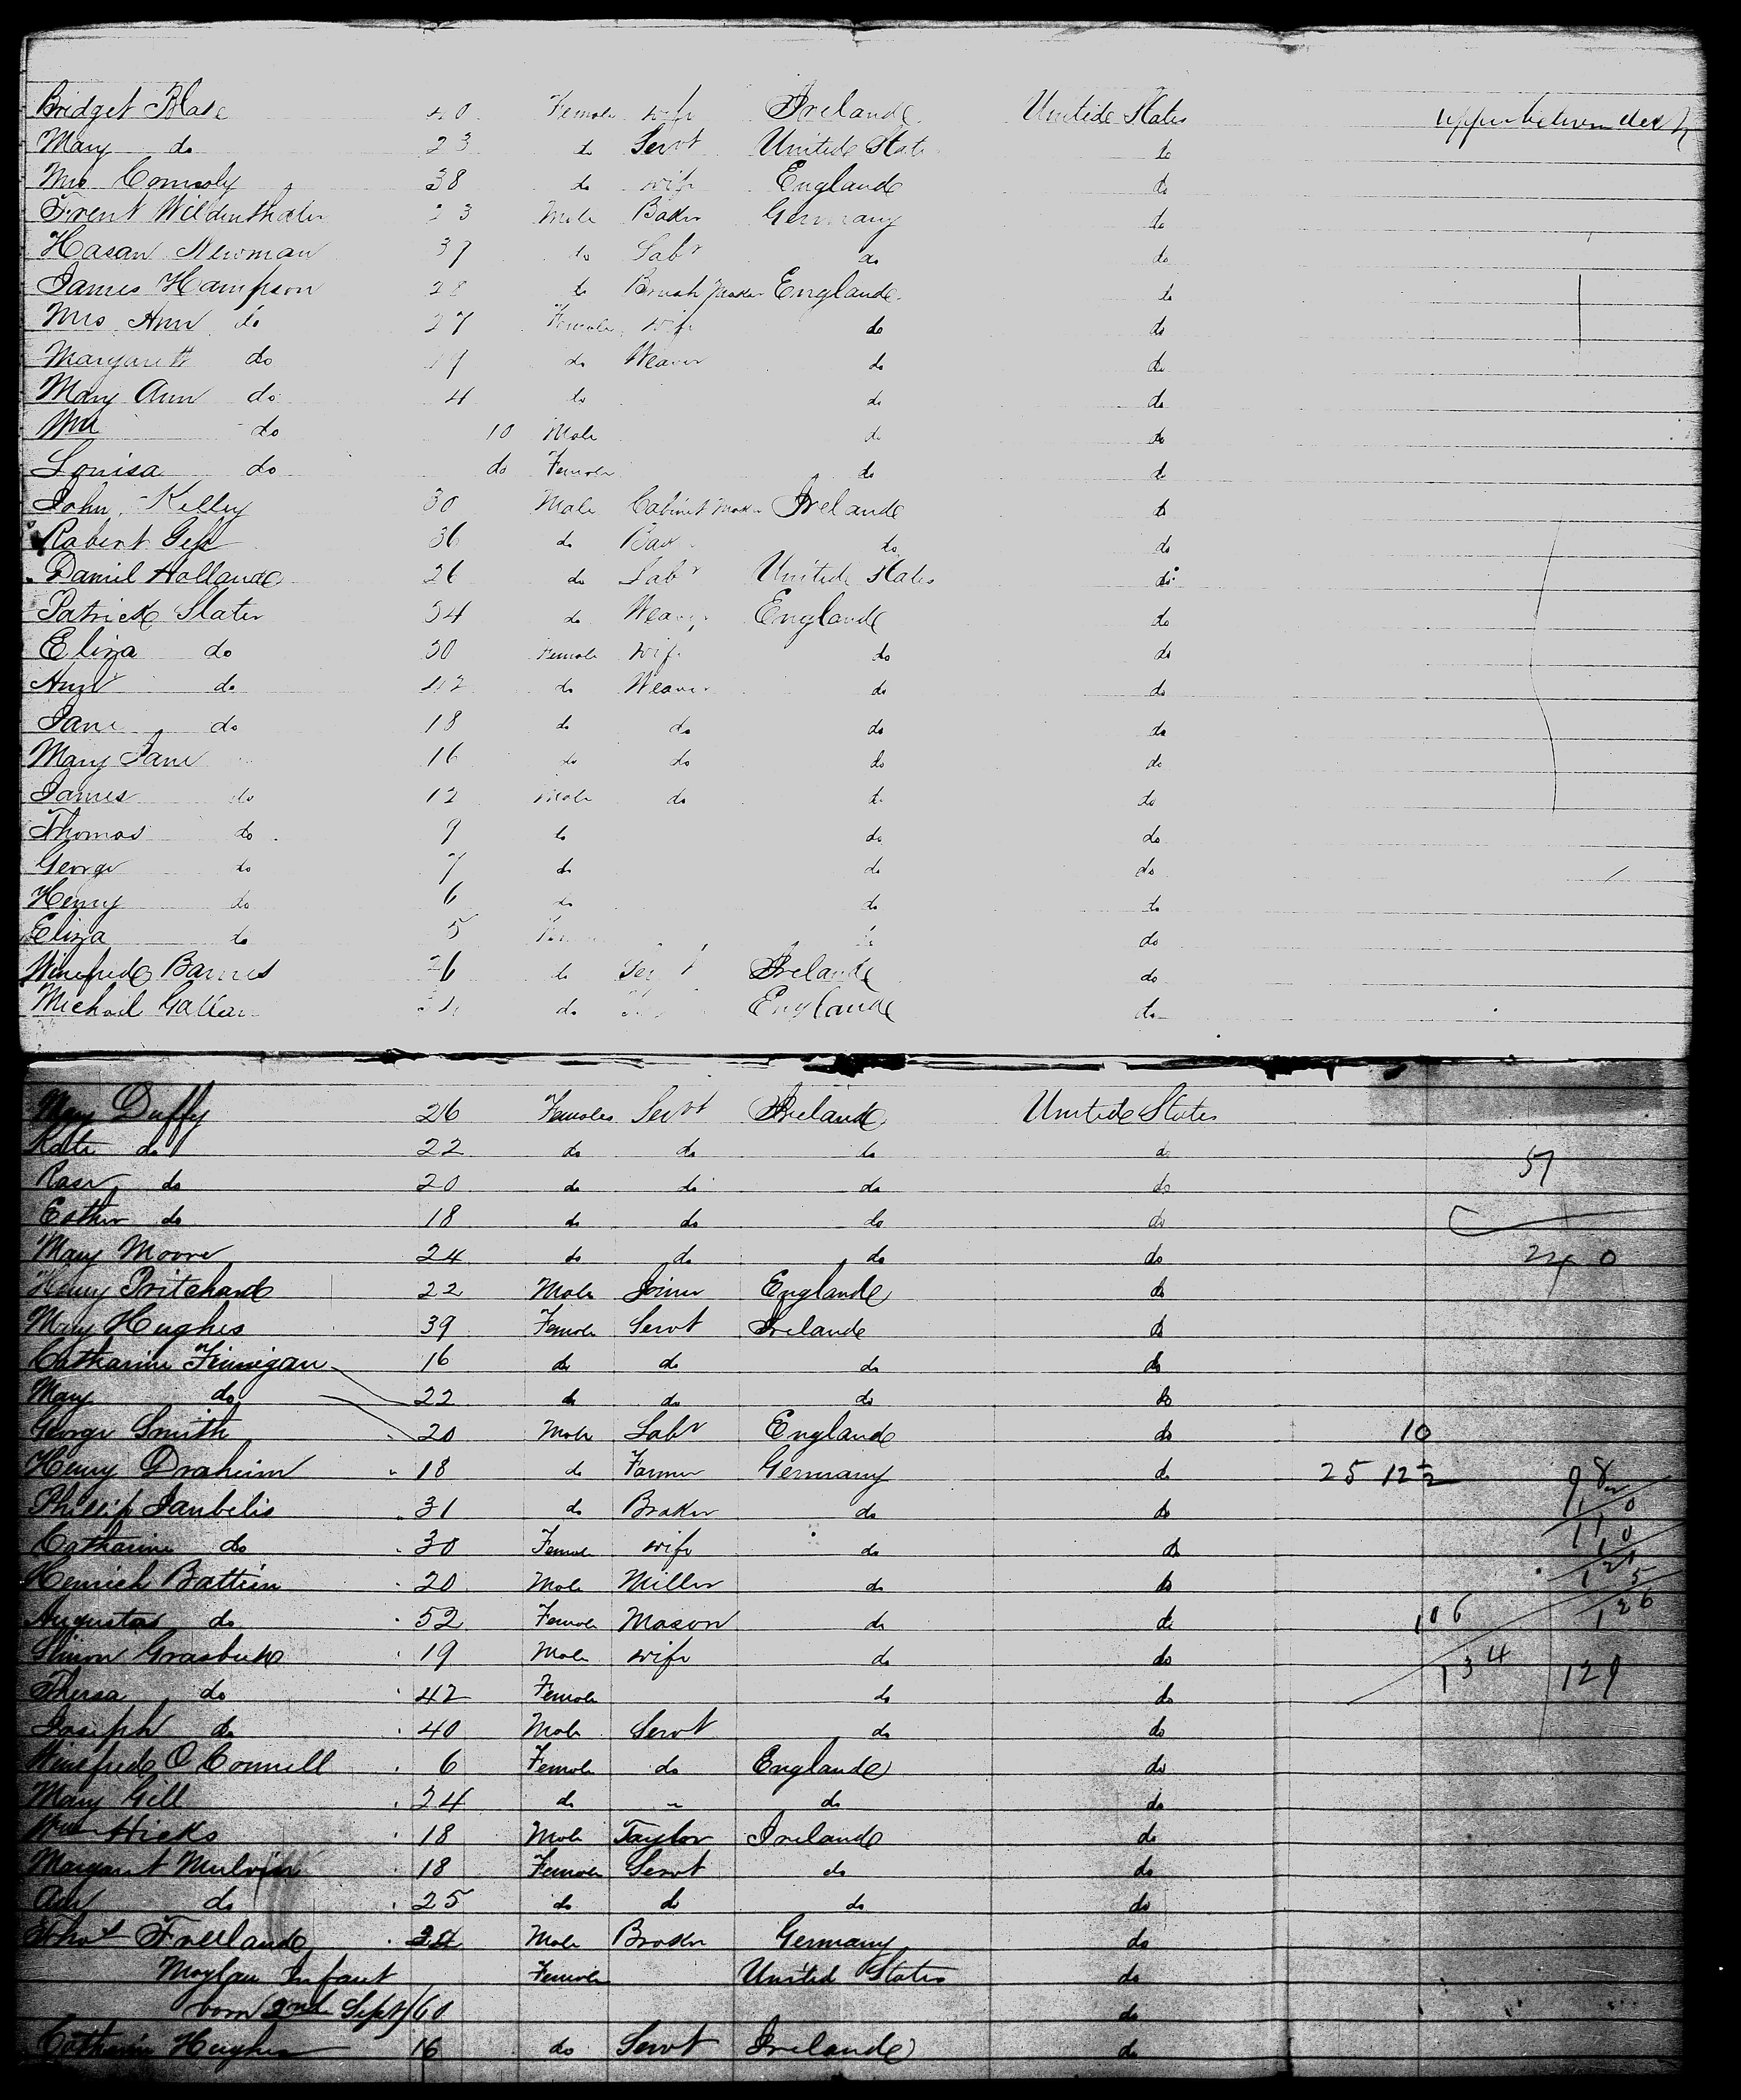 Bridget Blake 40 Female wife Irelande Unitide States upper between deck
Mary do 23 do Servt Unitide State do
Mrs Connoly 38 do wife Englande do
Frent Wildenthaler 23 Male Baker Germany do
Hasan Newman 37 do Labr do do
James Hampson 28 do Brush Maker Englande do
Mrs Ann do 27 Female wife do do
Margarett do 19 do Weaver do do
Mary Ann do 4 do do do
Wm do 10 Male do do
Louisa do do Female do do
John Kelley 30 Male Cabinet Maker Irelande do
Robert 36 do do do
Daniel Hollande 26 do Labr Unitide States do
Patrick Slater 34 do Weaver Englande do
Eliza do 30 Female wife do do
Ann do 42 do Weaver do do
Jane do 18 do do do do
Mary Jane 16 do do do do
James do 12 Male do do do
Thomas do 9 do do do
George do 7 do do do
Henry do 6 do do do
Eliza do 5 do do
Winefride Barnes 26 do Servt Irelande do
Michael do Englande do
Mary Duffy 26 Females Servt Irelande Unitide States
Kate do 22 do do do do 57
Rose do 20 do do do do
Esther do 18 do do do do
Mary Moore 24 do do do do 24 0
Henry Pritcharde 22 Male Joiner Englande do
Mary Hughes 39 Female Servt Irelande do
Catharine Finnigan 16 do do do do
Mary do 22 do do do do
George Smith 20 Male Labr Englande do 10
Henry Draheim 18 do Farmer Germany do 25 12½ 98
Phillip Janbelis 31 do Broker do do 110
Catharine do 30 Female wife do do 110
Henrich Battein 20 Male Miller do do 125
Augustas do 52 Female Mason do do 106 126
Simon Grasbuke 19 Male wife do do 134 129
Thersa do 42 Female do do
Joseph do 40 Male Servt do do
Winefride O Connell 6 Female do Englande do
Mary Gill 24 do " do do
Wm Hicks 18 Male Taylor Irelande do
Margaret Mulvin 18 Female Servt do do
Ann do 25 do do do do
Thos Freelande 32 Male Broker Germany do
Moylan Infant Female United States do
born 2nd Sept/60 do
Catharine Hughes 16 do Servt Irelande do